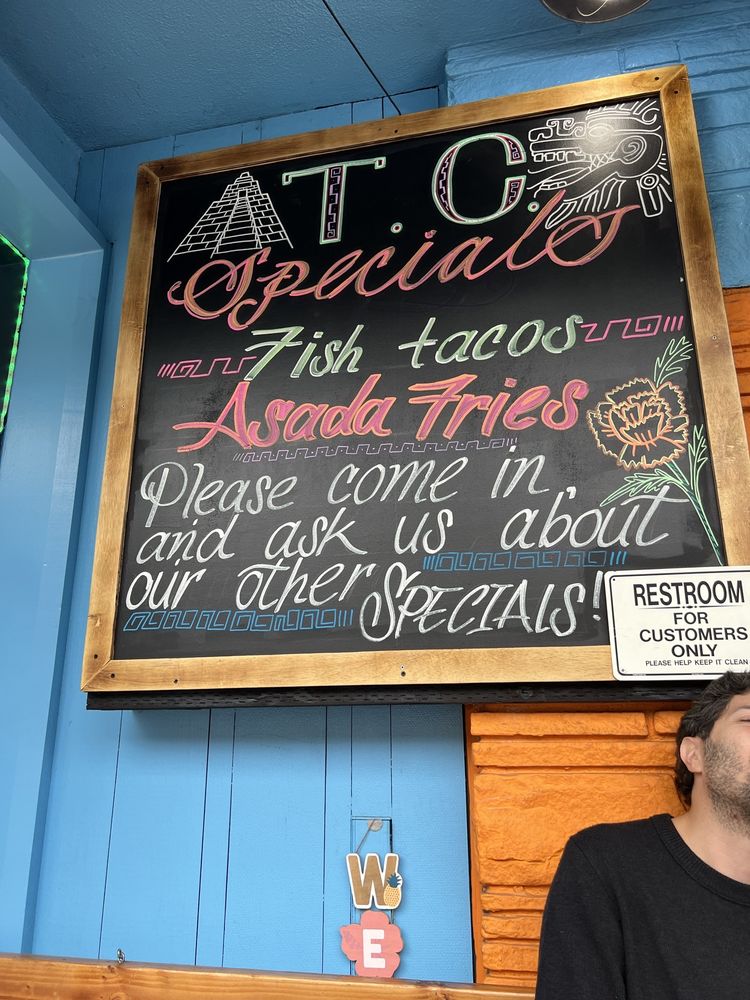 T.C.
Specials
Fish tacos
Asada Fries
Please come in
and ask us about
our other SPECIALS!
RESTROOM
FOR
CUSTOMERS
ONLY
PLEASE HELP KEEP IT CLEAN
W
E